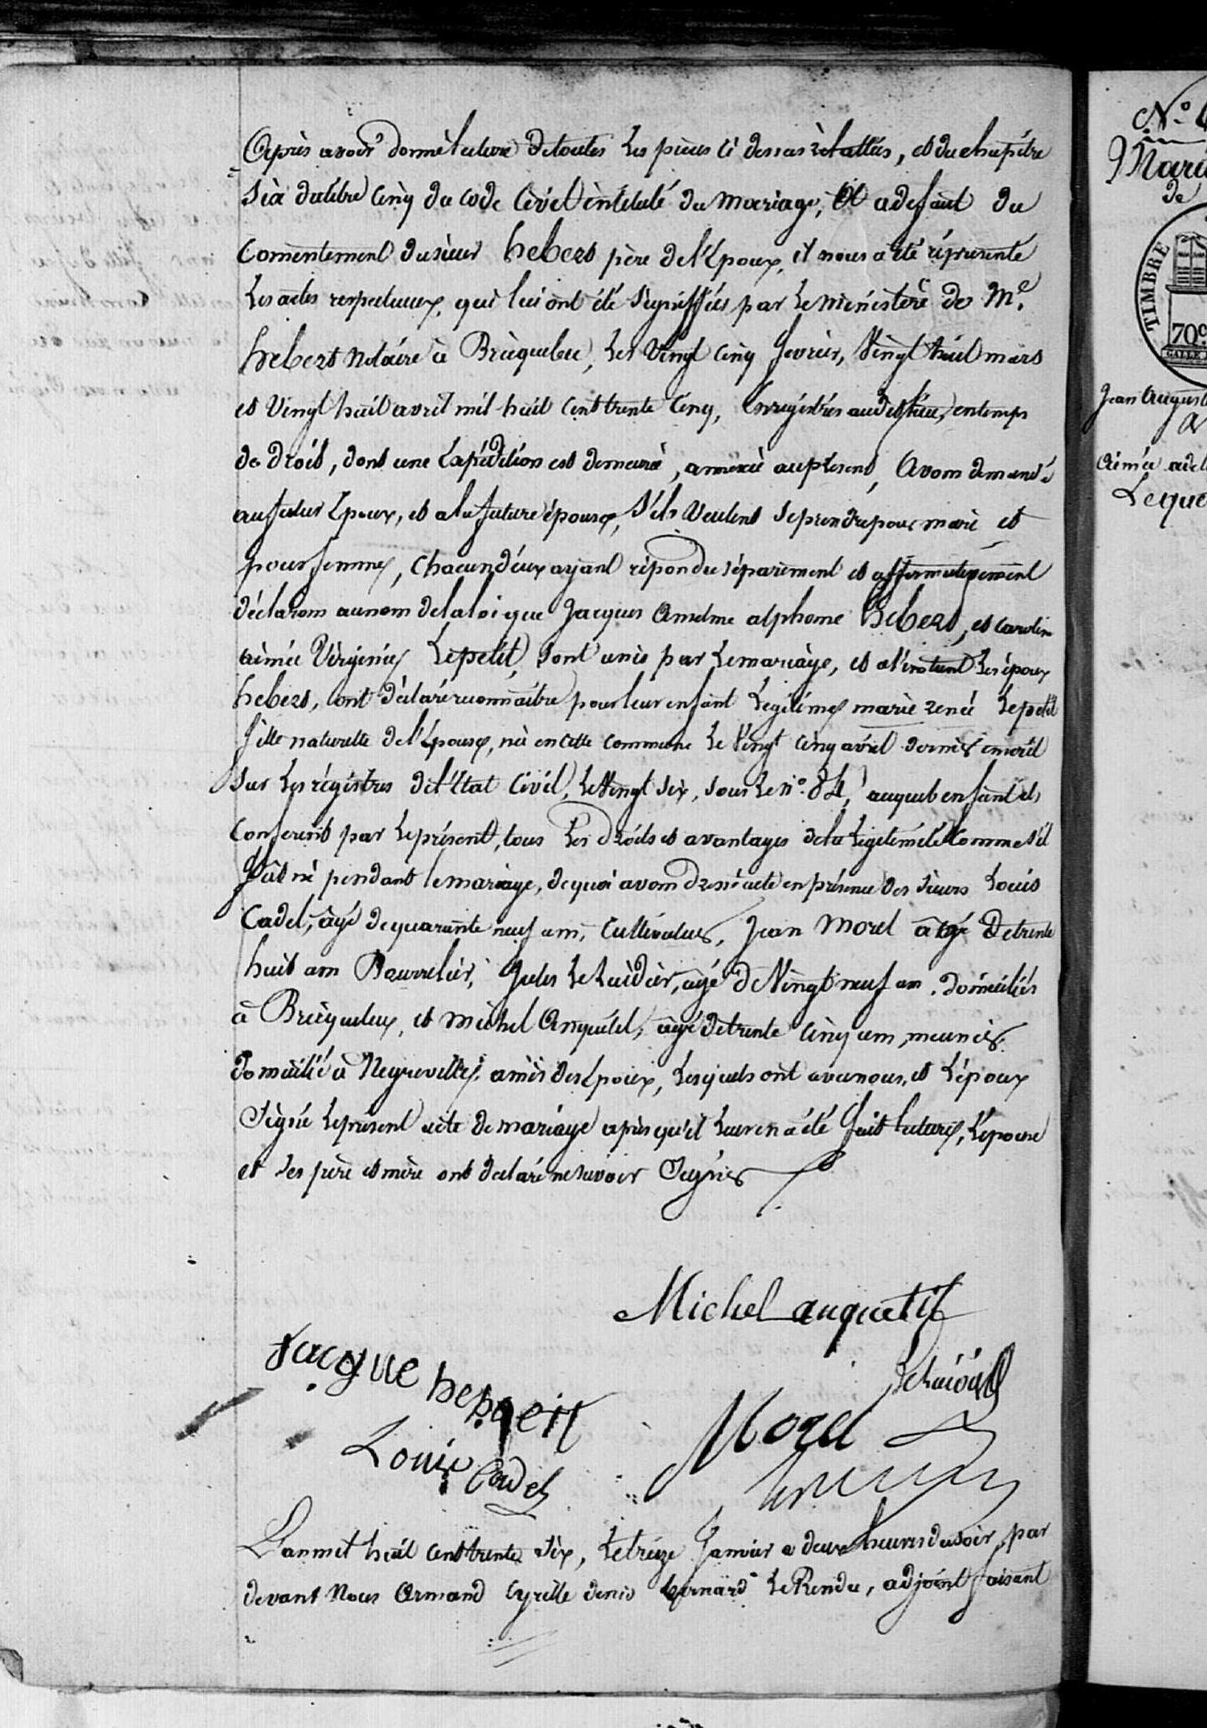 Après avoir donné lecture de toutes les pièces ci dessus relattées, et du chapitre
six du titre cinq du code civil intitulé du mariage, Et a defaut du
Consentement du sieur hebert père de l'Epoux, il nous a été réprésenté
Les actes respectueux, qui lui ont été signiffiés par le ministere de Me.
hebert Notaire à Bricquebec, les Vingt cinq fevrier, Vingt huit mars
et Vingt huit avril mil huit cent trente cinq, Enregistrés audit lieu, en temps
de droit, dont une Expédition est demeurée, annéxée au présent, Avons demandé
au futur Epoux, et a la future épouse, s'ils Veulent se prendre pour mari et
pour femme, chacun d'eux ayant répondu séparément et affirmativement
déclarons au nom de la loi que Jacques Anselme alphonse Hebert, et caroline
aimée Virginie Lepetit, sont unis par le mariage, et a l'instant les époux
hebert, ont déclaré reconnaître pour leur enfant légitime marie renée Lepetit
fille naturelle de l'Epouse, née en cette commune le Vingt cinq avril dernier inscrit
sur les régistres de l'Etat Civil, le Vingt six, sous le no. 84, auquel enfant ils
Conferent par le présent, tous les Droits et avantages de la légitimité Comme s'il
fût né pendant le mariage, de quoi avons dressé acte en présence des sieurs Louis
Cadel, âgé de quarante neuf ans, Cultivateur, Jean Morel âgé De trente
huit ans Bourrelier, Jules Lehuidier, agé de Vingt neuf ans, domiciliés
à Bricquebec, et michel Anquetil, âgé de trente cinq ans, meunier
domicilié à Negreville, amis des Epoux, lesquels ont avec nous, et l'époux
Signé le présent acte de mariage après qu'il leur en a été fait lecture, l'épouse
et ses père et mère ont déclaré ne savoir Signer
Michel anquetil
Jacque hebert
Morel
Louis Cadel
L'an mil huit cent trente six, Le treize Janvier a deux heures du soir, par
devant Nous Armand Cyrille denis bernard LeRendu, adjoint faisant
No. 4
Mari
de
TIMBRE
70c
Jean August
Aimée adel
Leque